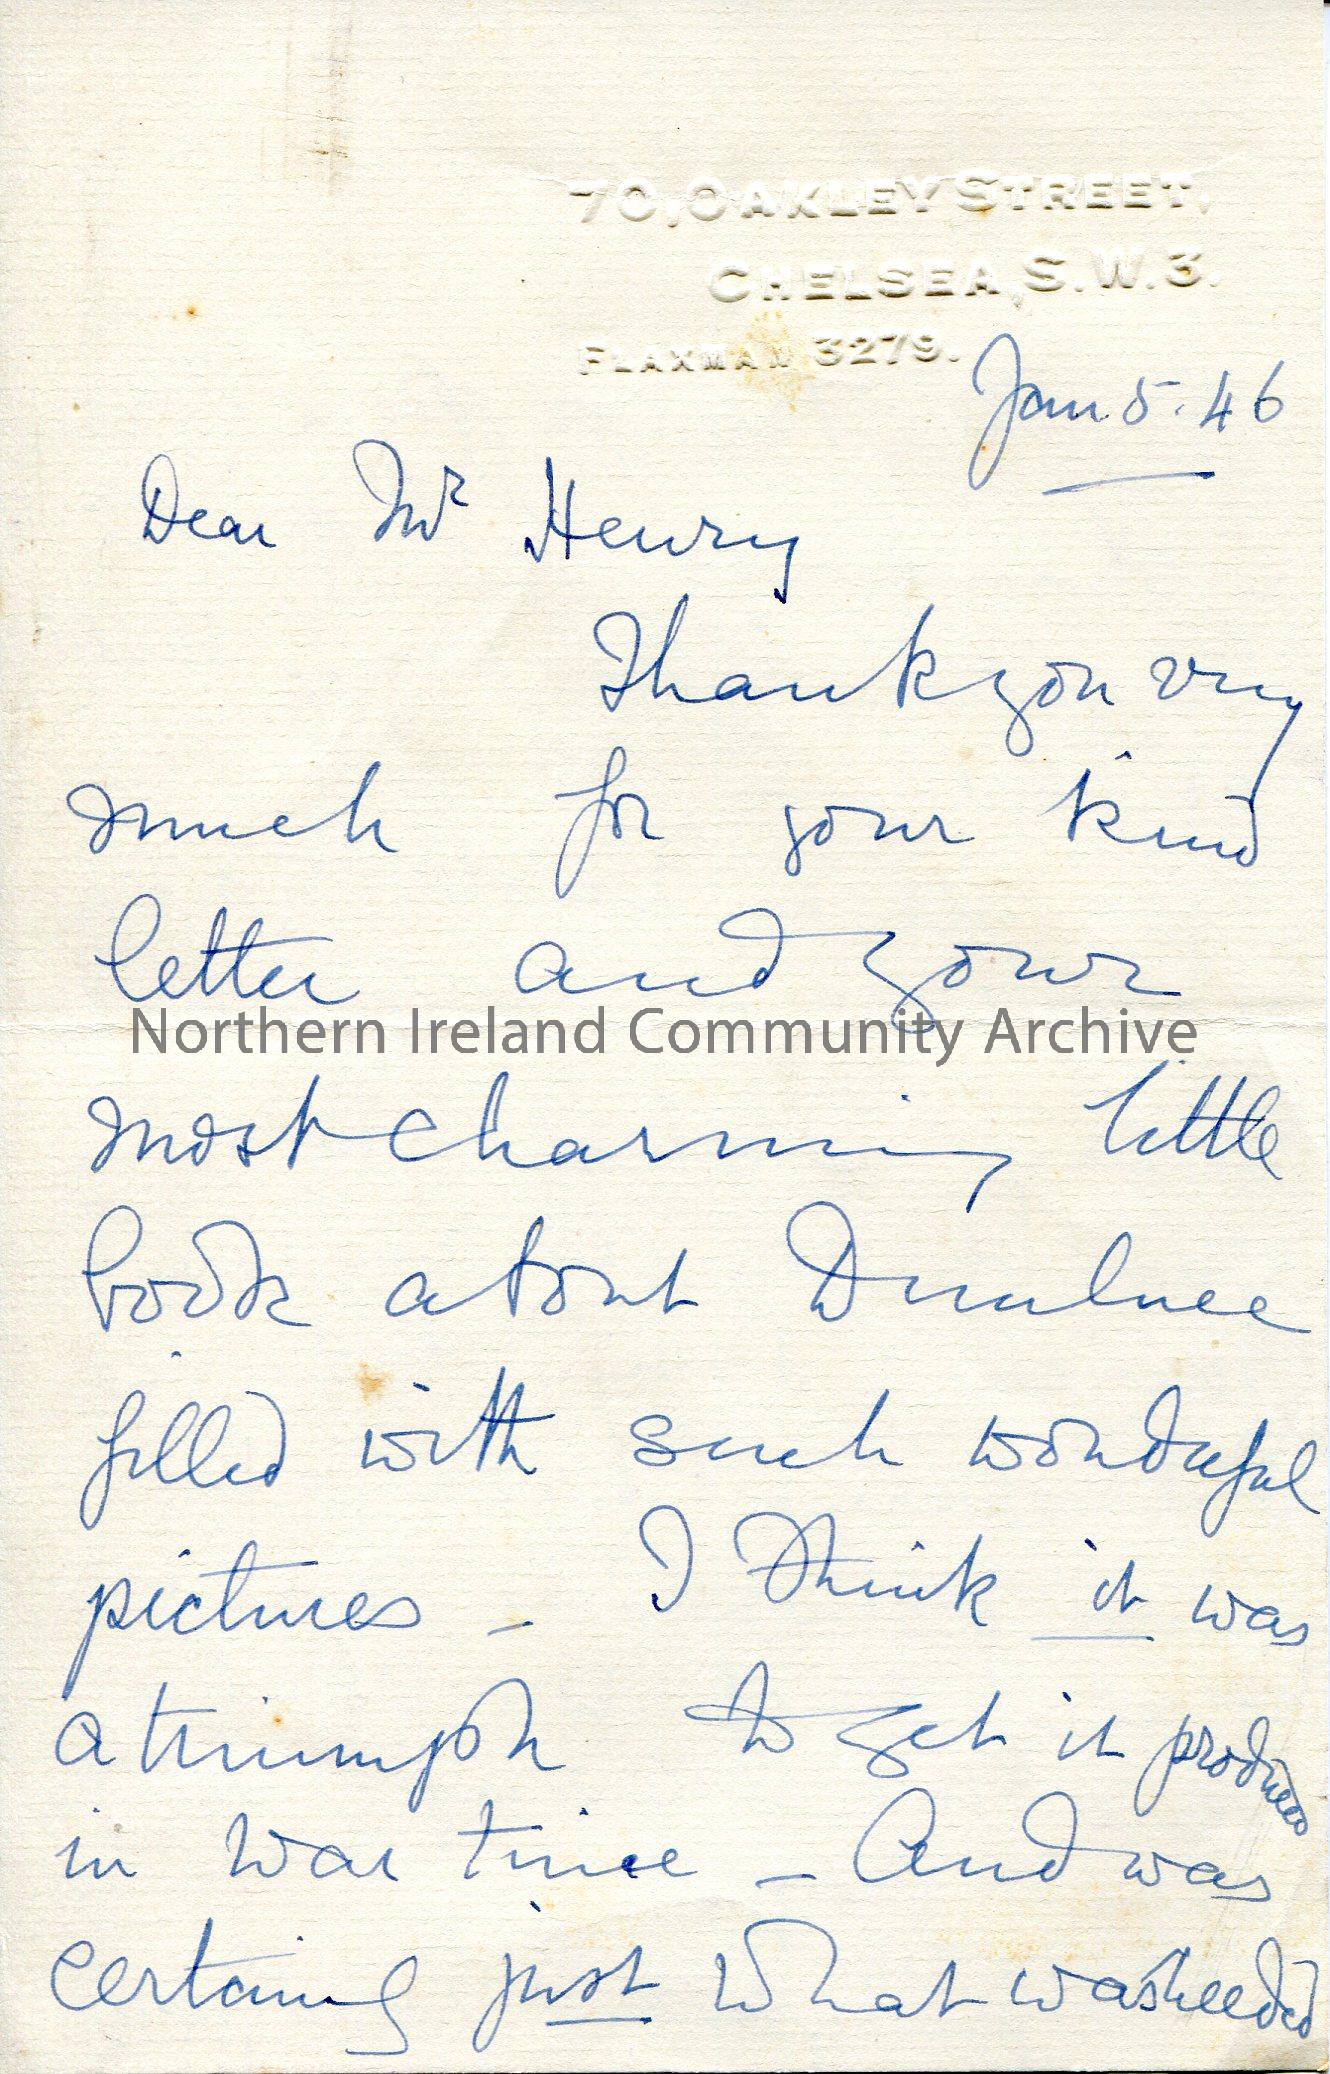 70, OAKLEY STREET,
CHELSEA, S.W.3.
FLAXMAN 3279.
Jan. 5. 46
Dear Mr Henry
Thank you very
much for your kind
letter and your
Northern Ireland Community Archive
most charming little
book about Dunluce
filled with such wonderful
pictures - I think it was
a triumph to get it produced
in war time - And was
certainly just what was needed